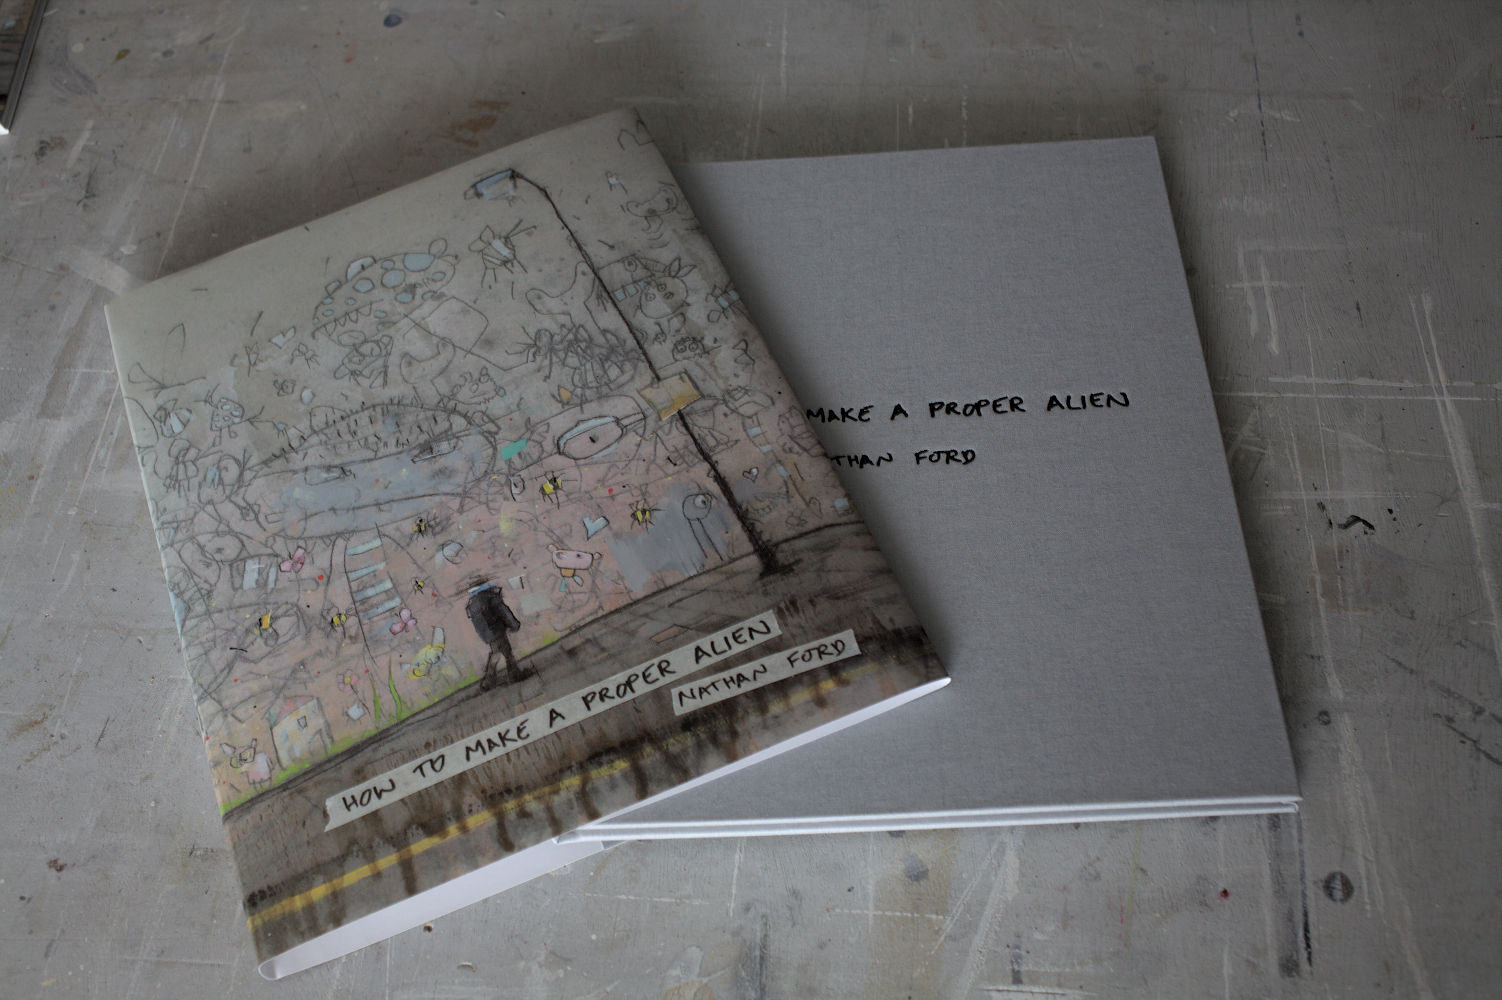 HOW TO MAKE A PROPER ALIEN
NATHAN FORD
MAKE A PROPER ALIEN
THAN FORD